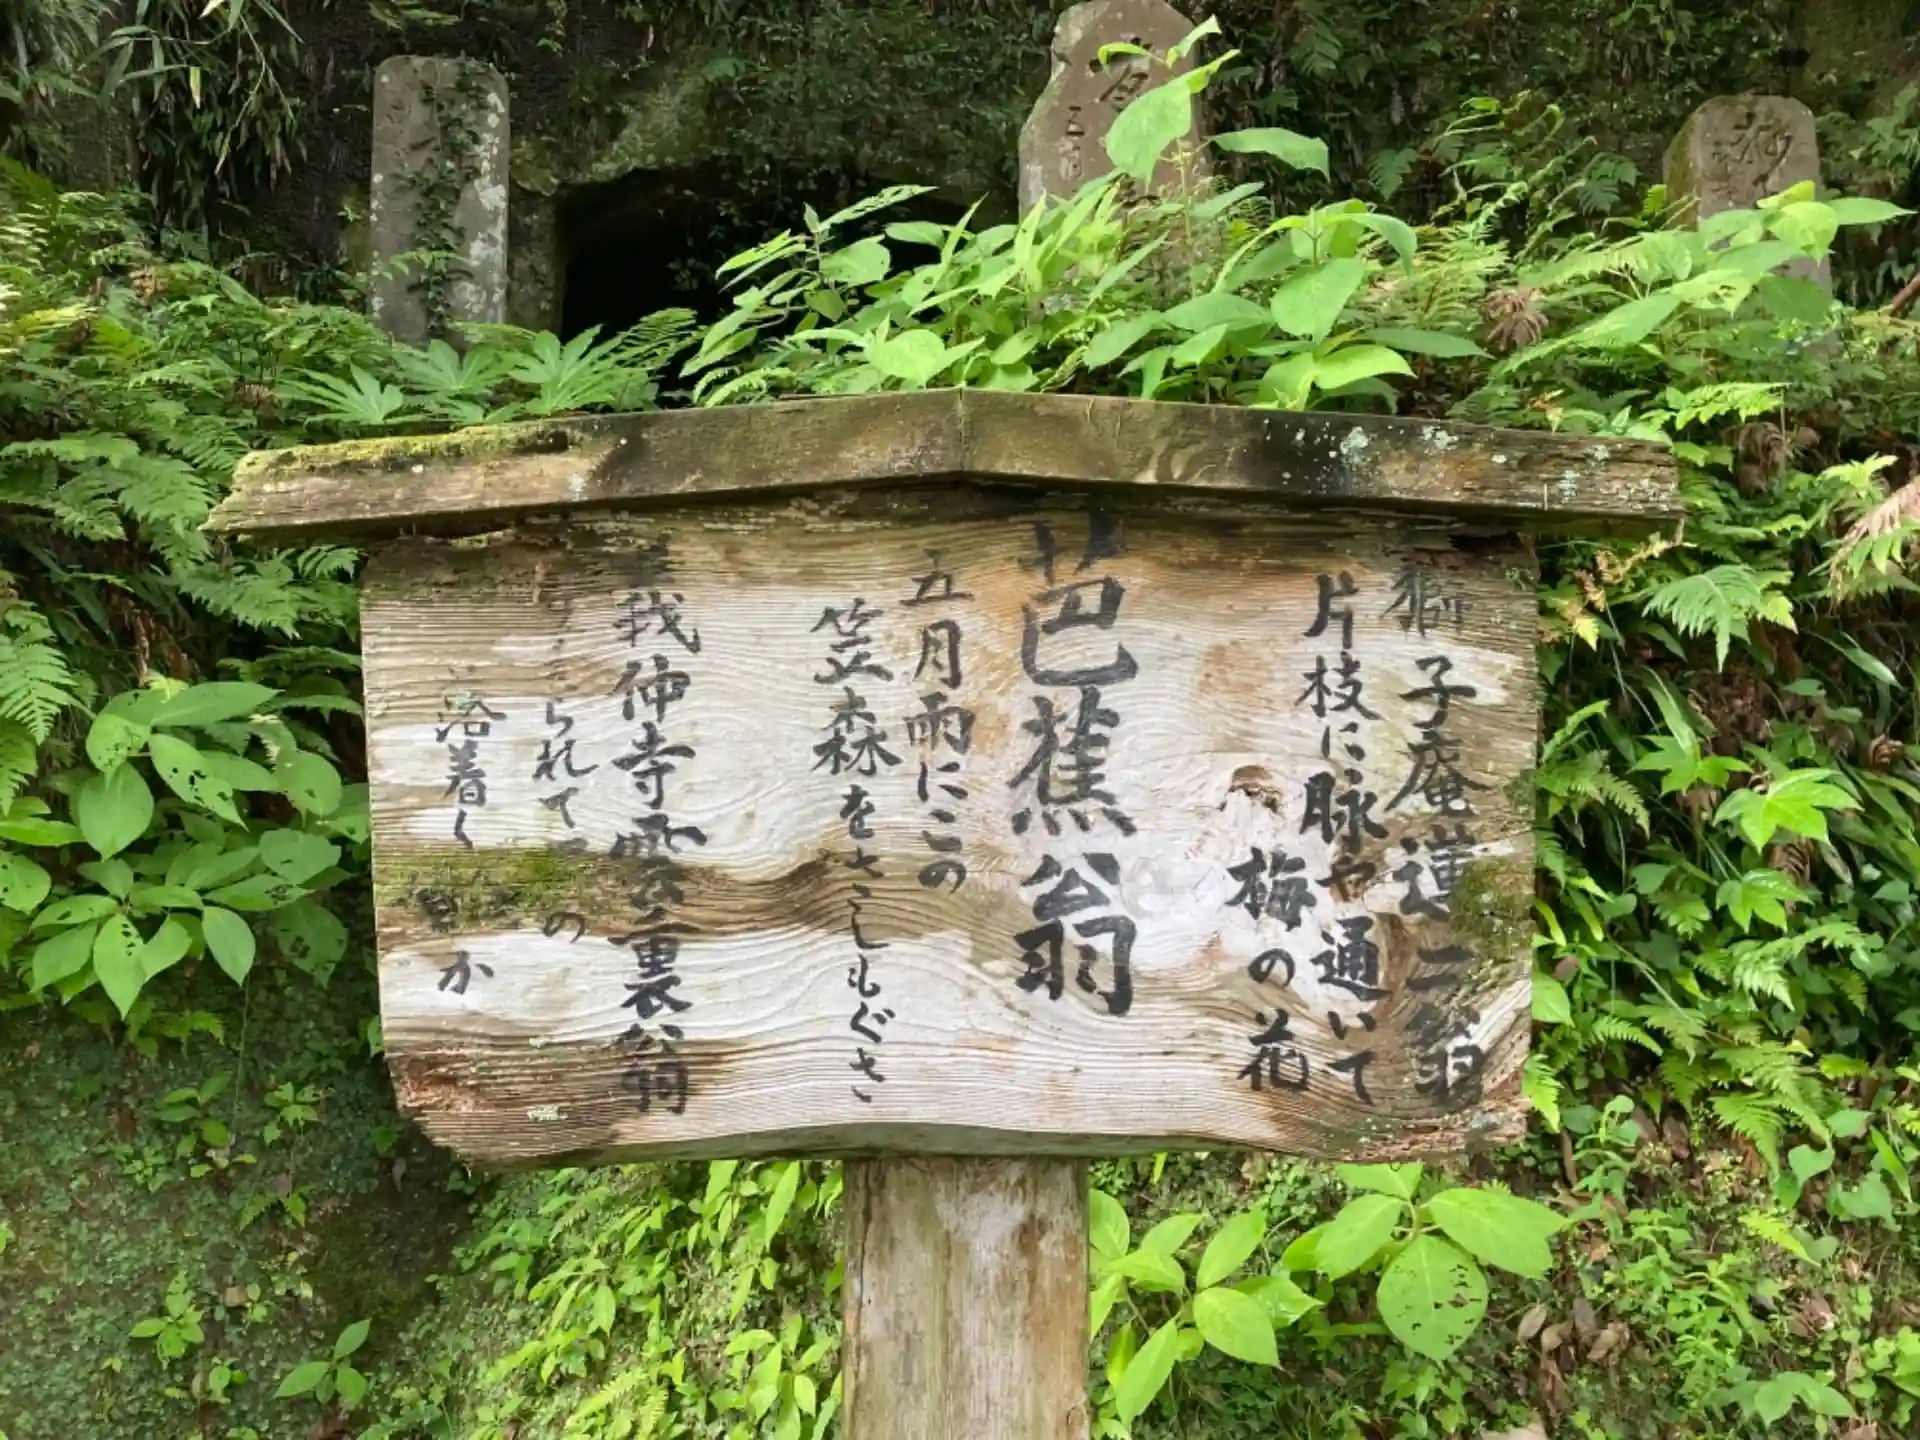 獅子庵蓮二翁
片枝に脉や通いて
梅の花
芭蕉翁
五月雨にこの
笠森をさしもぐさ
義仲寺雲裏翁
られて
の
浴着く
か